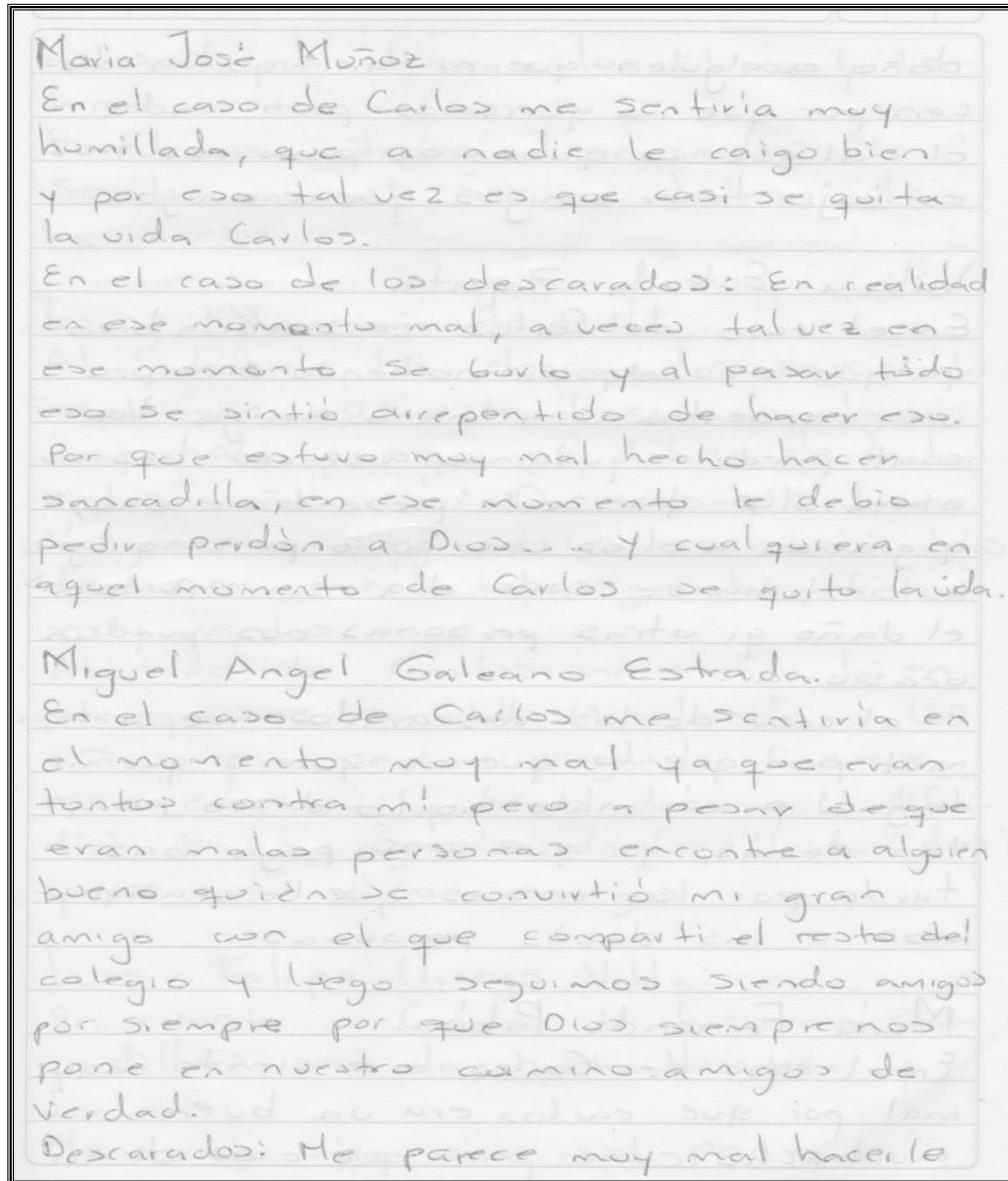 Maria José Muñoz
En el caso de Carlos me sentiria muy
humillada, que a nadie le caigo bien
y por eso tal vez es que casi se quita
la vida Carlos.
En el caso de los descarados: En realidad
en ese momento mal, a veces tal vez en
ese momento se burlo y al pasar todo
eso se sintió arrepentido de hacer eso.
Por que estuvo muy mal hecho hacer
sancadilla, en ese momento le debio
pedir perdón a Dios.... y cualquiera en
aquel momento de Carlos se quito la vida.
Miguel Angel Galeano Estrada.
En el caso de Carlos me sentiria en
el momento muy mal ya que eran
tontos contra mi pero a pesar de que
eran malas personas encontre a alguien
bueno quién se convirtió mi gran
amigo con el que comparti el resto del
colegio y luego seguimos siendo amigos
por siempre por que Dios siempre nos
pone en nuestro camino amigos de
verdad.
Descarados: Me parece muy mal hacerle